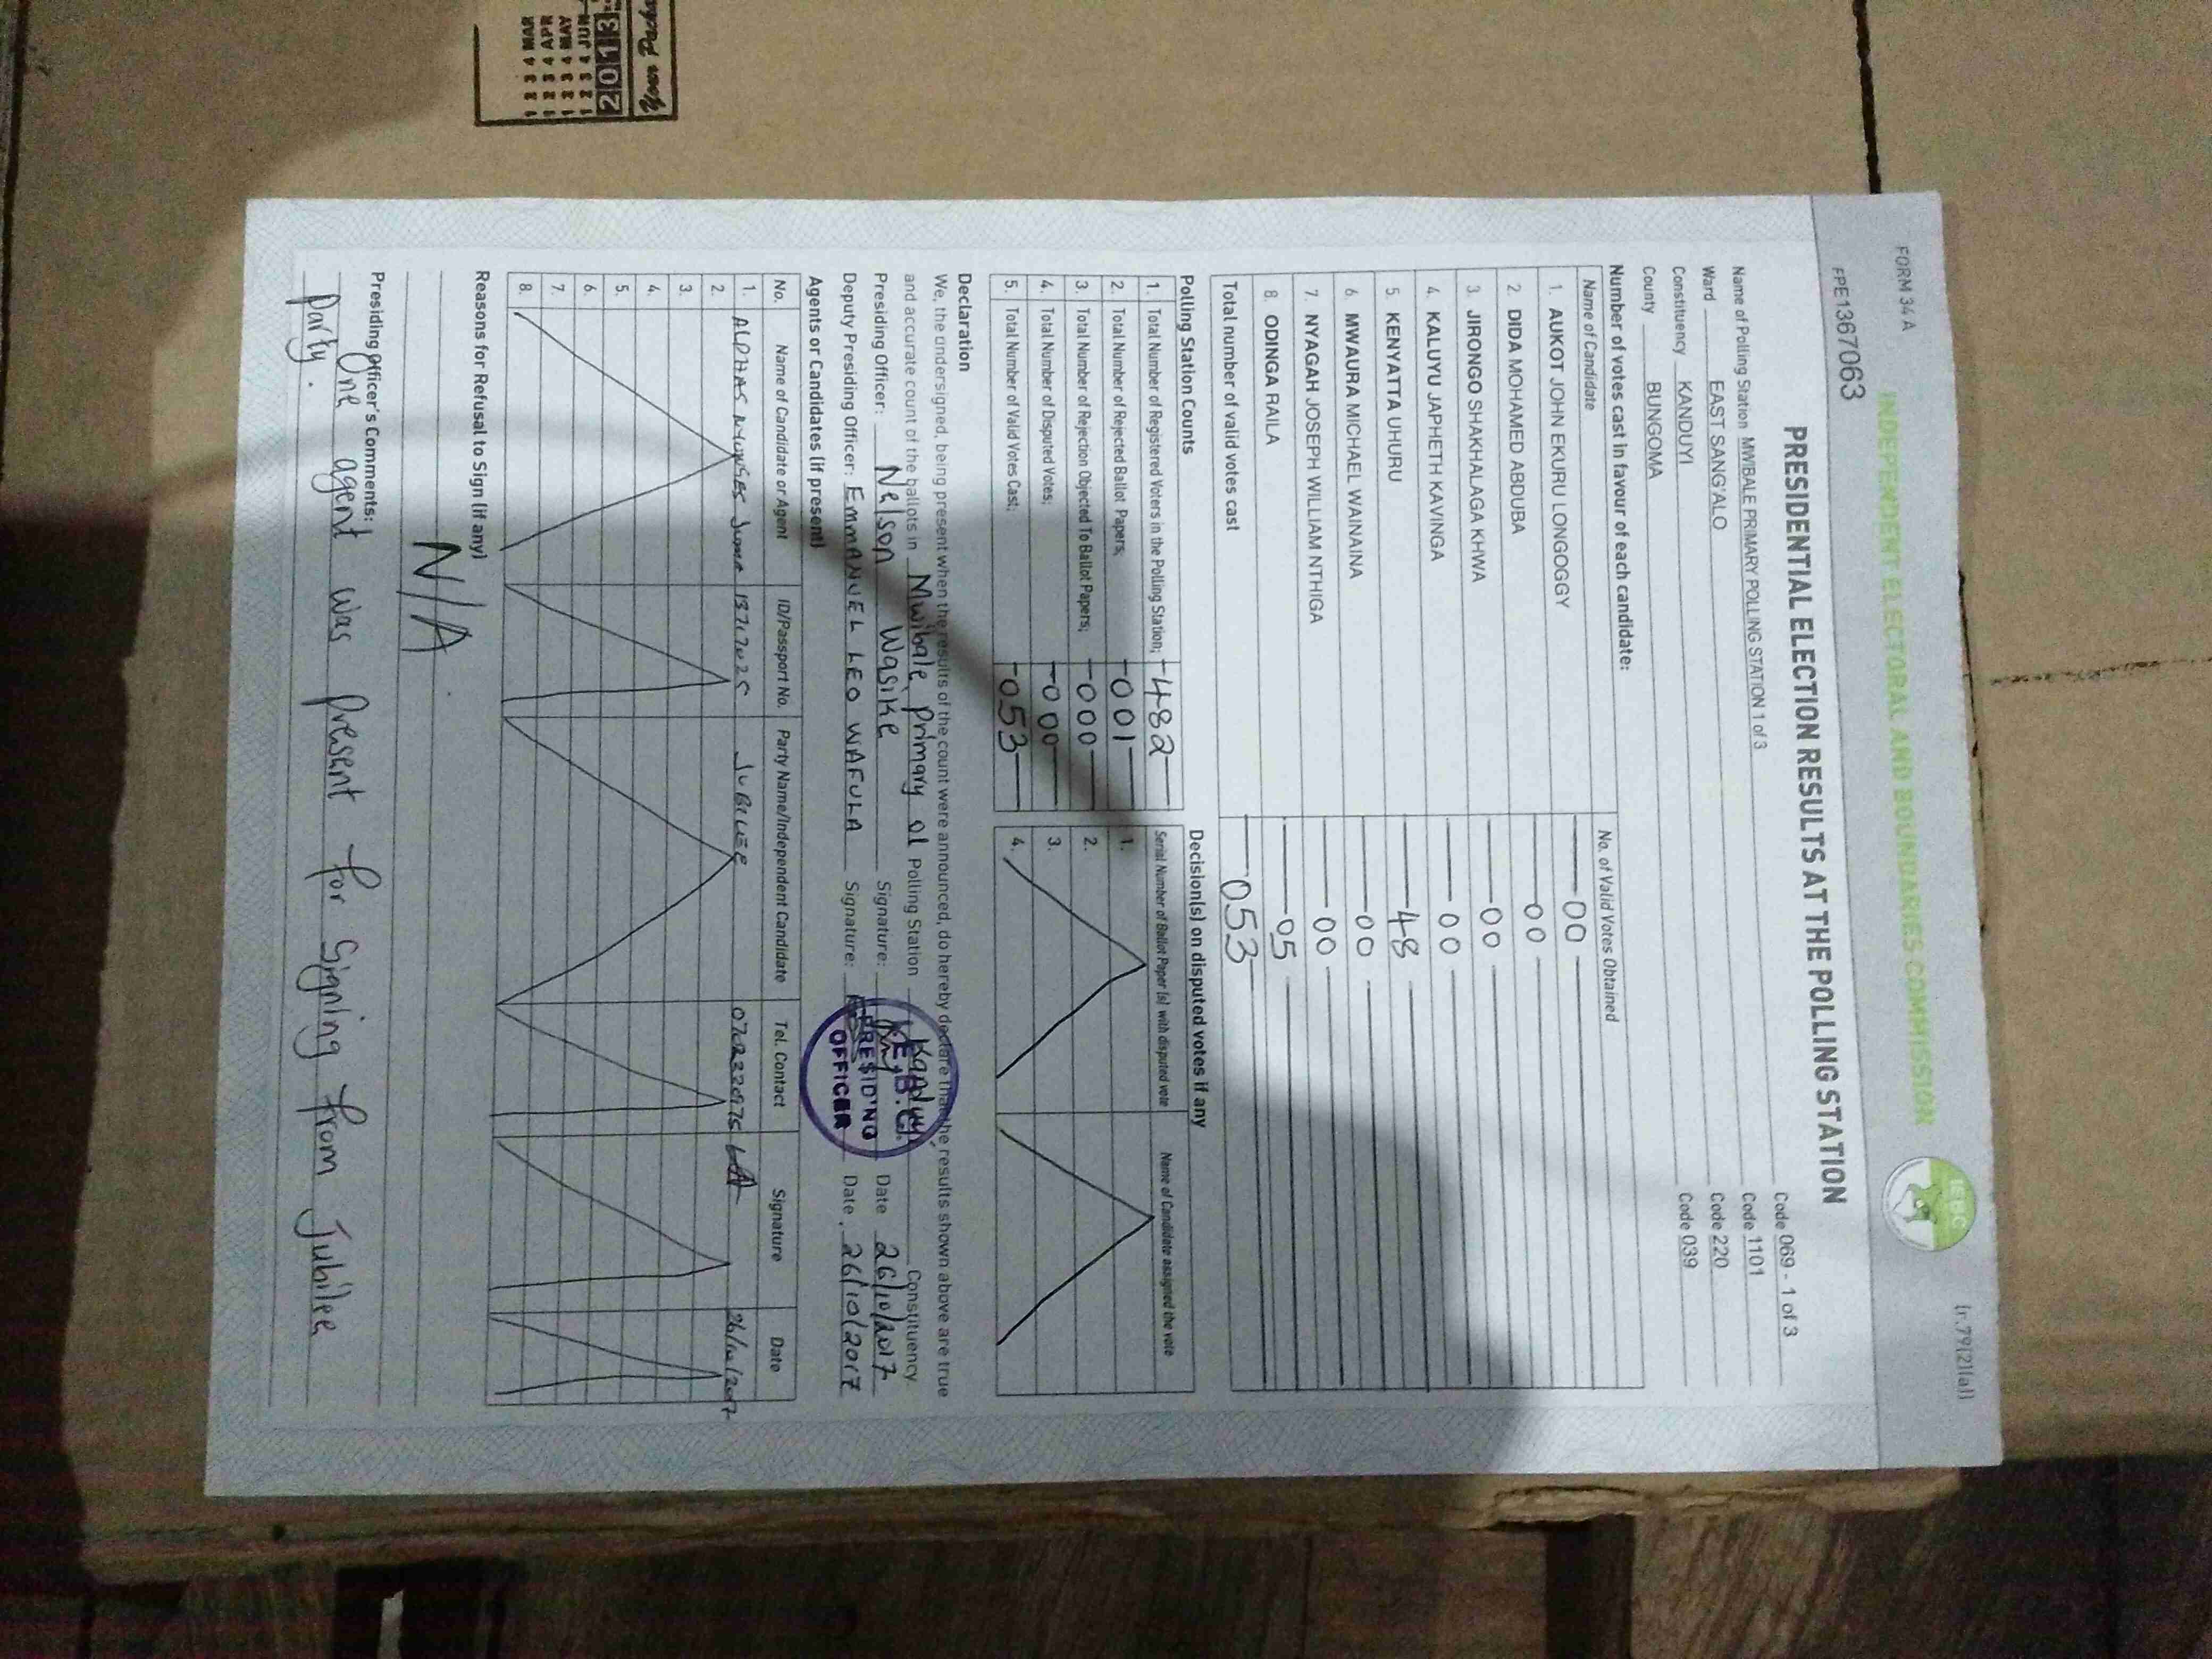 FORM 34 A
(r.79(2)(a))
INDEPENDENT ELECTORAL AND BOUNDARIES COMMISSION
IEBC
FPE1367063
PRESIDENTIAL ELECTION RESULTS AT THE POLLING STATION
Code 069 - 1 of 3
Name of Polling Station MWIBALE PRIMARY POLLING STATION 1 of 3 Code 1101
Ward EAST SANG'ALO Code 220
Constituency KANDUYI Code 039
County BUNGOMA
Number of votes cast in favour of each candidate:
Name of Candidate No. of Valid Votes Obtained
1. AUKOT JOHN EKURU LONGOGGY 00
2. DIDA MOHAMED ABDUBA 00
3. JIRONGO SHAKHALAGA KHWA 00
4. KALUYU JAPHETH KAVINGA 00
5. KENYATTA UHURU 48
6. MWAURA MICHAEL WAINAINA 00
7. NYAGAH JOSEPH WILLIAM NTHIGA 00
8. ODINGA RAILA 05
Total number of valid votes cast 053
Polling Station Counts
1. Total Number of Registered Voters in the Polling Station; 482
2. Total Number of Rejected Ballot Papers; 001
3. Total Number of Rejection Objected To Ballot Papers; 000
4. Total Number of Disputed Votes; 000
5. Total Number of Valid Votes Cast; 053
Decision(s) on disputed votes if any
Serial Number of Ballot Paper (s) with disputed vote Name of Candidate assigned the vote
1.
2.
3.
4.
Declaration
We, the undersigned, being present when the results of the count were announced, do hereby declare that the results shown above are true
and accurate count of the ballots in Mwibale primary 01 Polling Station Kanduyi Constituency.
Presiding Officer: Nelson Wasike Signature: Date 26/10/2017
Deputy Presiding Officer: EMMANUEL LEO WAFULA Signature: Date 26/10/2017
PRESIDING
OFFICER
Agents or Candidates (if present)
No. Name of Candidate or Agent ID/Passport No. Party Name/Independent Candidate Tel. Contact Signature Date
1. Juma 13717025 JUBILEE 26/10/2017
2.
3.
4.
5.
6.
7.
8.
Reasons for Refusal to Sign (if any)
N/A
Presiding Officer's Comments:
One agent was present for signing from Jubilee
Party.
2013
MAR
APR
MAY
JUN